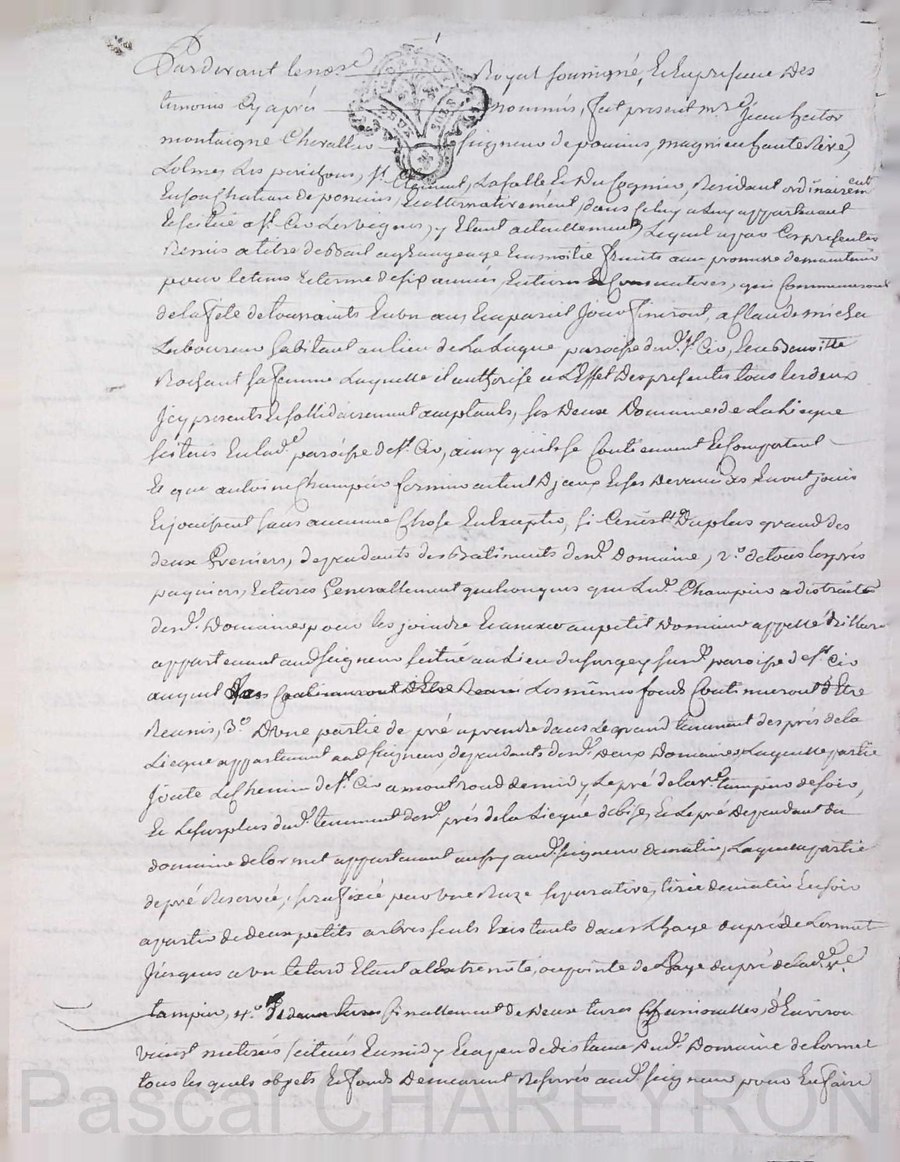 Pardevant le no.re Royal soussigné, et en presence des
temoins cy aprés nommés, fut present m.re Jean hector
montaigne Chevallier seigneur de poncins, magnieu hauterive,
Lolme, Les perichons, S.t Clement, Lasalle et Du Cognier, Residant ordinairement
en son Chateau de poncins, et alternativement, dans celuy a luy appartenant
et scitué a S.t Cir Les vignes, y Etant actuellement, Lequel a par Ces presentes
Remis a titre de Bail a grangeage en moitié fruits avec promesse de maintenir
pour le tems et terme de six années, Entieres et Consecutives, qui Commenceront
de la fete de toussaints En un an, Et a pareil Jour finiront, a Claude
Laboureur habitant au lieu de La paroisse dud.t S.t Cir, et a Benoitte
sa femme Laquelle il authorise a L'Effet Des presentes, tous les deux
Jcy presents et sollidairement acceptants, ses Deux Domaines de La Liegue
scitués En lad.e paroisse de S.t Cir, ainsy qu'ils se Contiennent Et Comportent
Et que antoine Champier fermier actuel D'jceux Et ses Devanciers En ont jouis
Et jouissent sans aucune Chose En Excepter, si Ce n'est 1.o Du plus grand des
deux Greniers, dependants des Batiments desd.s Domaine, 2.o de tous les prés
paquiers, Et terres Generallement quelconques que Led.t Champier a distraits
desd.s Domaines pour les joindre Et annexer au petit Domaine appellé
appartenant aud.t seigneur scitué au Lieu du surgey susd.te paroisse de S.t Cir
auquel Les mêmes fonds Continueront d'Etre
Reunis, 3.o D'une partie de pré a prendre dans Le grand tenement des prés de la
Liegue appartenant aud.t seigneur, dependants desd.s Deux Domaines, Laquelle partie
Joute Le Chemin de S.t Cir a montrond de midy, Le pré de la v.e tampier de soir,
Et Le surplus dud.t tenement desd.s prés de la Liegue de bise, Et Le pré Dependant du
domaine de lormet appartenant aussy aud.t seigneur de matin, Laquelle partie
de pré Reservée, sera fixée par une Raze separative, tirée de matin En soir
a partir de deux petits arbres seuls Existants dans L'haye du pré de Lormet
Jusques a un tetard Etant a L'Extremité, ou pointe de L'haye du pré de lad.e v.e
tampier, 4.o finallement de Deux terres d'Environ
vingt meterés scitués En midy Et a peu de distance Dud.t Domaine de lormet
tous les quels objets Et fonds Demeurent Reservés aud.t seigneur pour En faire
Pascal CHAREYRON